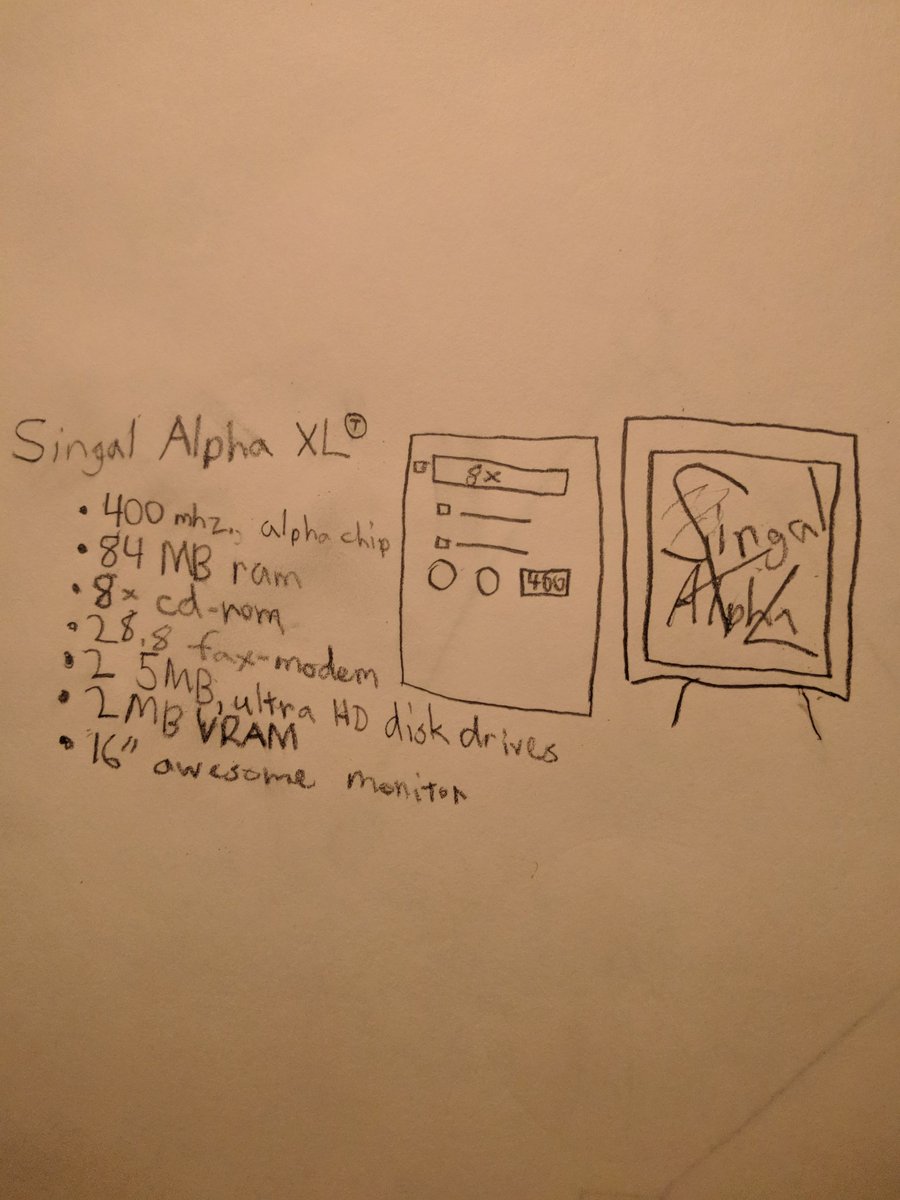 Singal Alpha XL Ⓣ
• 400 mhz., alpha chip
• 84 MB ram
• 8x cd-rom
• 28,8 fax-modem
• 2 5MB, ultra HD disk drives
• 2MB VRAM
• 16" awesome monitor
8x
400
Singal
Alpha
XL